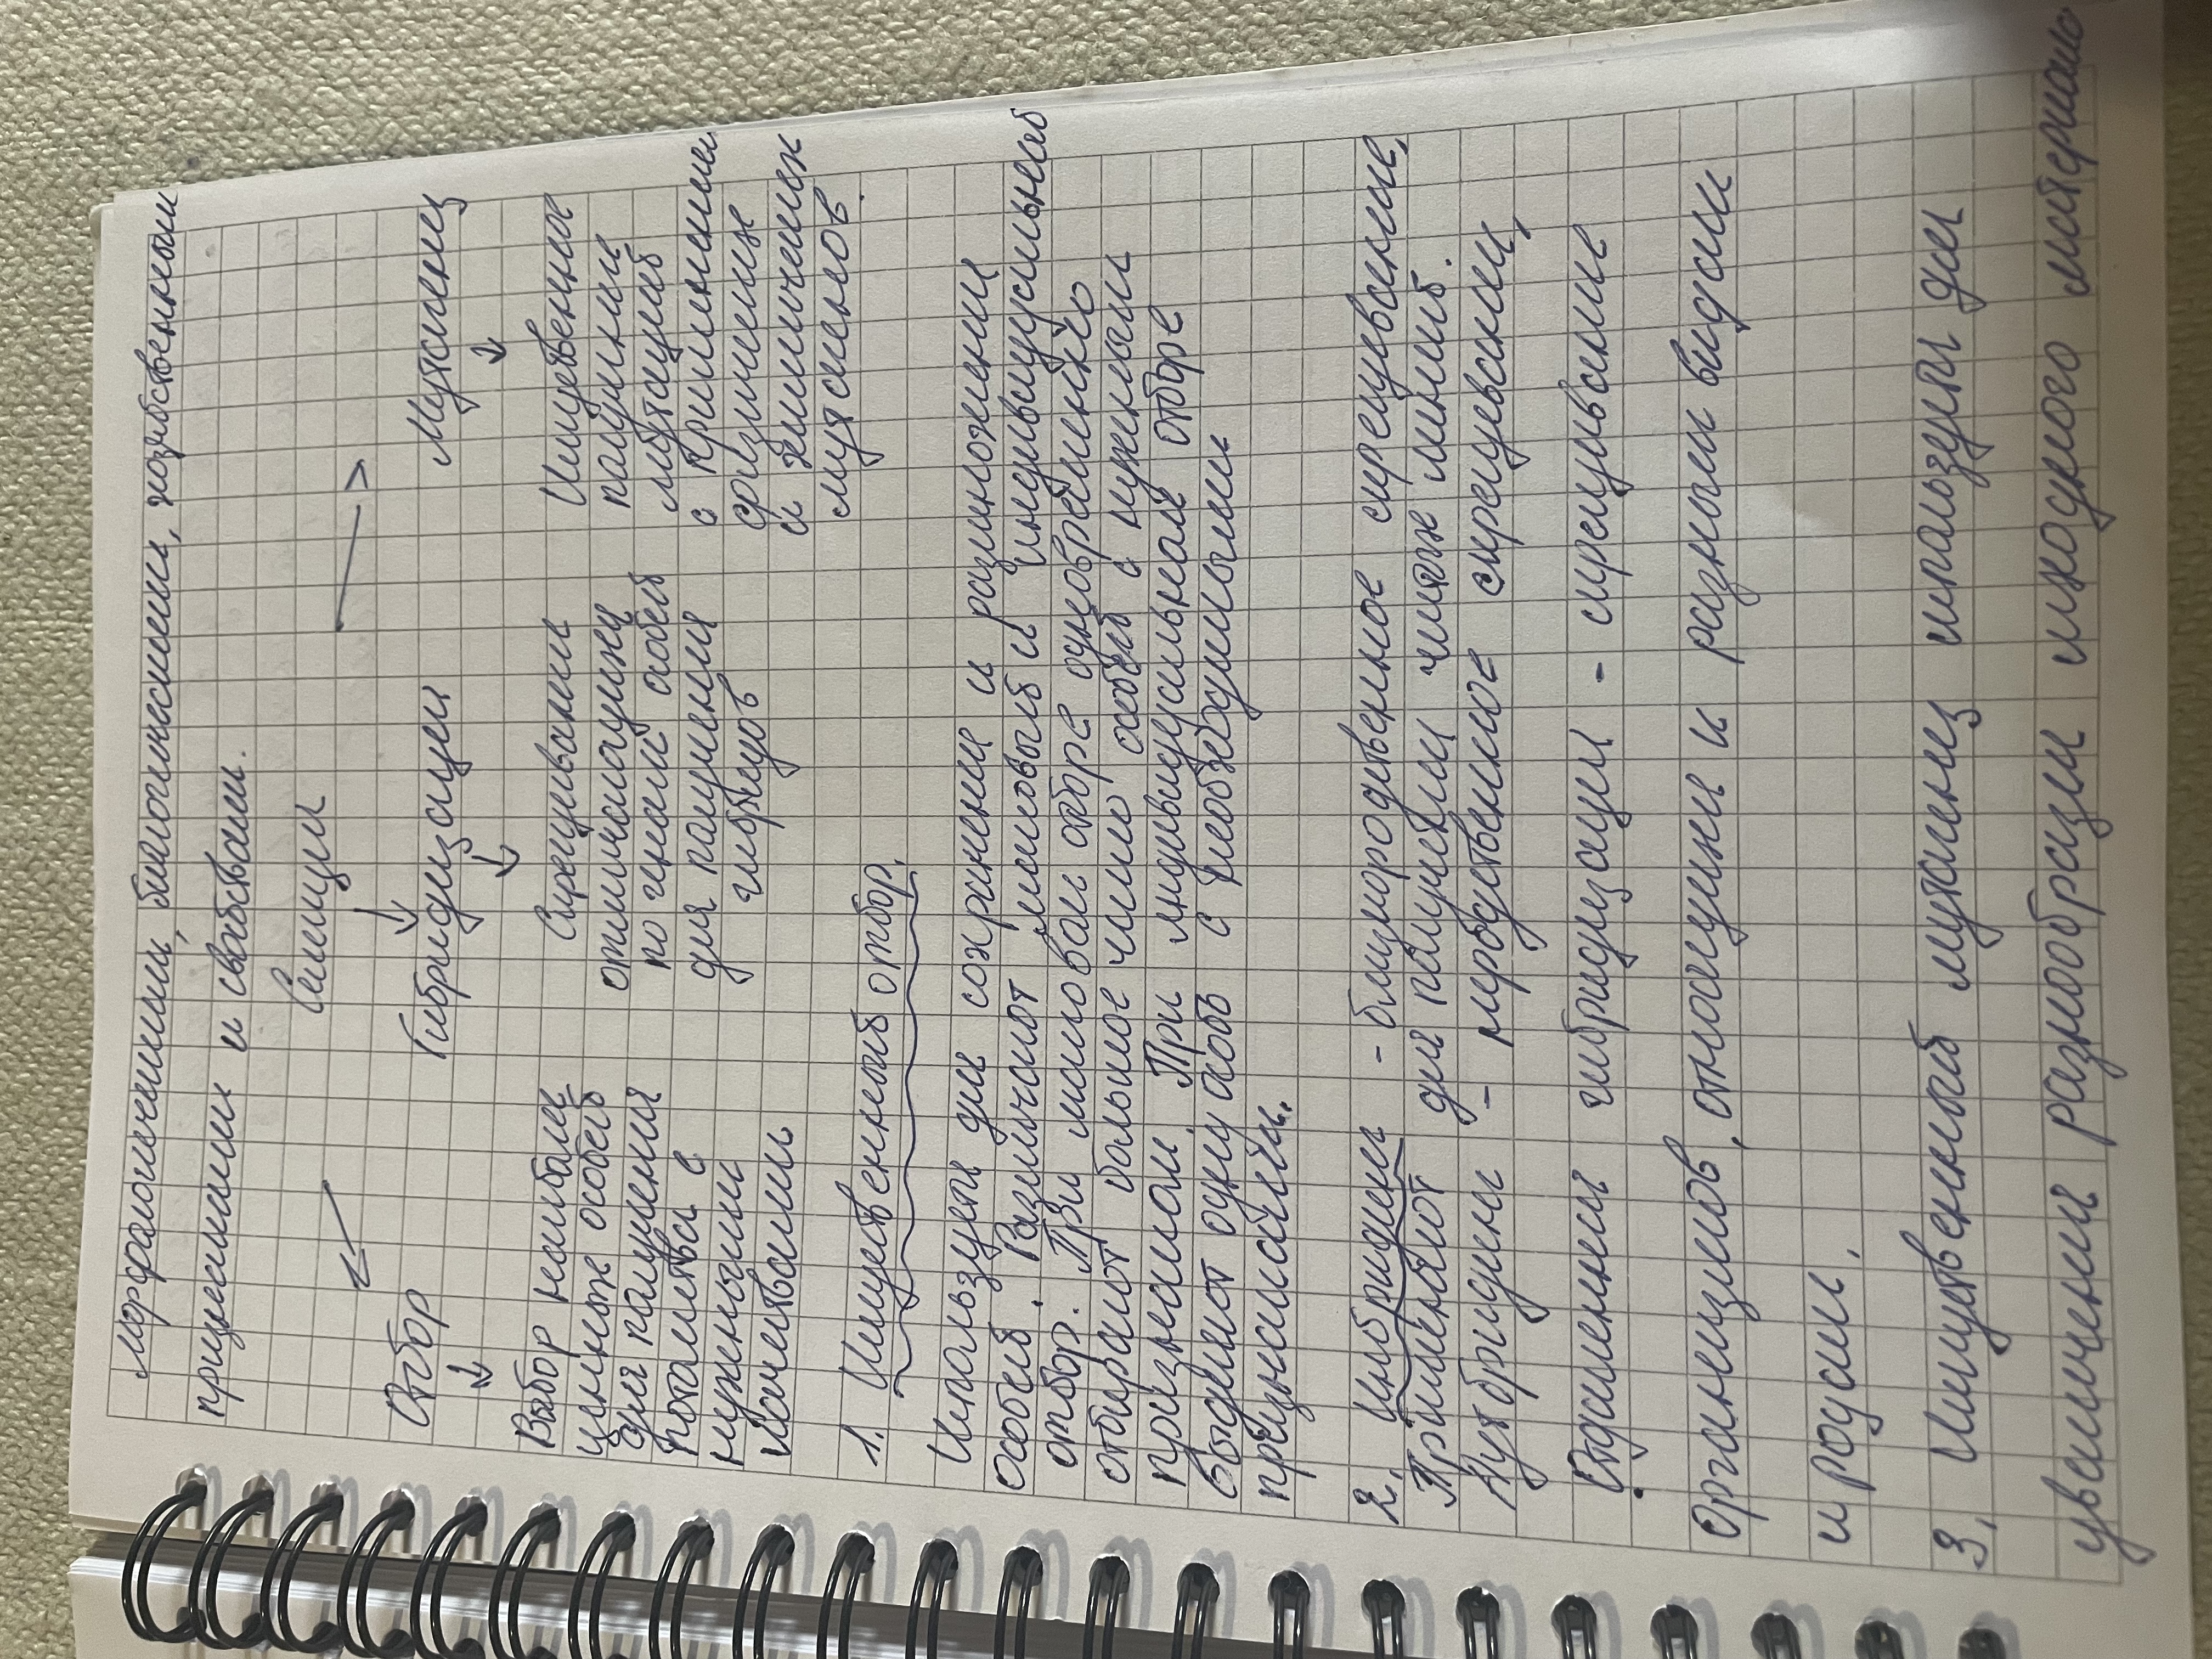 морфологичными, биологическими, хозяйственными
признаками и свойствами.
Селекция
Отбор Гибридизация Мутагенез
Выбор наиболее Скрещивание Искусственное
ценных особей отличающихся получение
для получения по генам особей мутаций
потомства с для получения с применением
нужными гибридов физических
качествами и химических
мутагенов.
1. Искусственный отбор.
Используется для сохранения и размножения
особей. Различают массовый и индивидуальный
отбор. При массовом отборе одновременно
отбирают большое число особей с нужными
признаками. При индивидуальном отборе
выделяют одну особь с необходимыми
признаками.
2. Инбридинг - близкородственное скрещивание,
Применяют для получения чистых линий.
Аутбридинг - неродственное скрещивание,
Отдаленная гибридизация - скрещивание
организмов, относящихся к разным видам
и родам.
3. Искусственный мутагенез используется для
увеличения разнообразия исходного материала